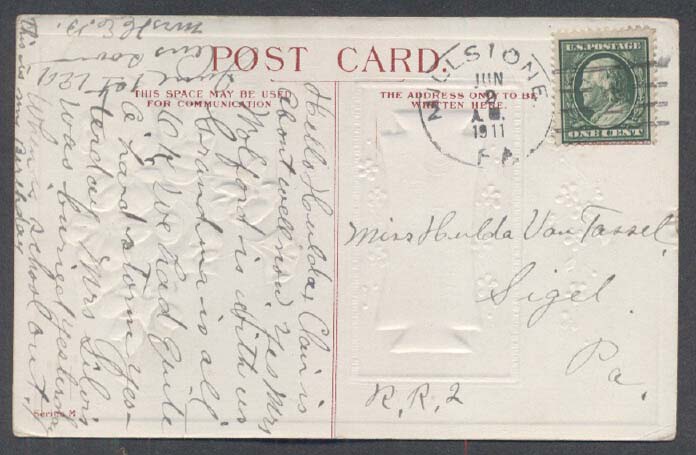 POST CARD.
THIS SPACE MAY BE USED
FOR COMMUNICATION
THE ADDRESS ONLY TO BE
WRITTEN HERE.
JUN
2
1911
PA
U.S. POSTAGE
ONE CENT
Miss Hulda Van Tassel.
Sigel.
Pa.
R.R.2
June 1st 1911
Hello Hulda, Clair is
about well now. Yes Mrs
Wolford is with us
Grandma is all
OK We had quite
a hard storm yes-
terday. Mrs
was buried yesterday
When is school out.
This is my birthday
Series M